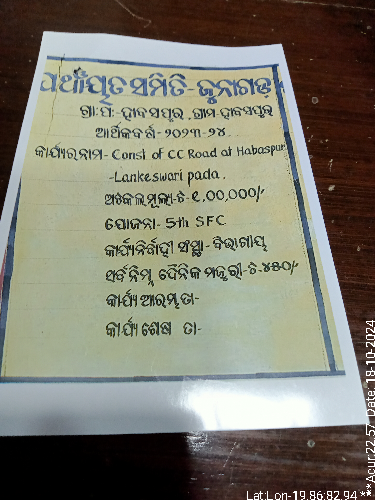 ପଞ୍ଚାୟତ ସମିତି-ଜୁନାଗଡ଼
ଗ୍ରା:ପ:-ହାବସପୁର, ଗ୍ରାମ-ହାବସପୁର
ଆର୍ଥିକବର୍ଷ-୨୦୨୩-୨୪.
କାର୍ଯ୍ୟରନାମ-Const of CC Road at Habaspur
-Lankeswari pada.
ଅଟକଳମୂଲ୍ୟ-ଟ-୧,00,000/-
ଯୋଜନା- 5th SFC
କାର୍ଯ୍ୟନିର୍ବାହୀ ସଂସ୍ଥା-ବିଭାଗୀୟ
ସର୍ବନିମ୍ନ ଦୈନିକ ମଜୁରୀ-ଟ.୪୫୦/-
କାର୍ଯ୍ୟ ଆରମ୍ଭ ତା-
କାର୍ଯ୍ୟ ଶେଷ ତା-
Lat:Lon-19.86:82.94 ***Acur:22.57 Date:18-10-2024